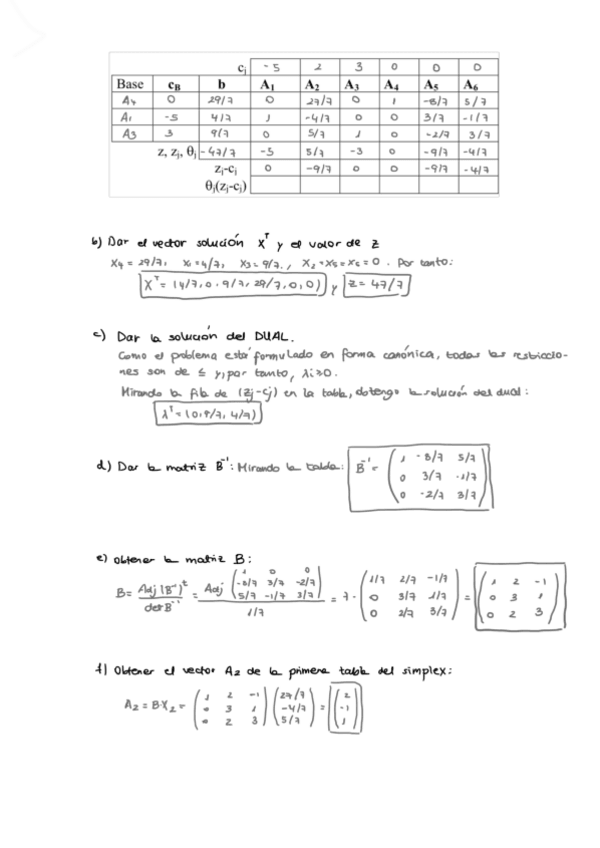 cj -5 2 3 0 0 0
Base cB b A1 A2 A3 A4 A5 A6
A4 0 29/7 0 27/7 0 1 -8/7 5/7
A1 -5 4/7 1 -4/7 0 0 3/7 -1/7
A3 3 9/7 0 5/7 1 0 -2/7 3/7
z, zj, θj -47/7 -5 5/7 -3 0 -9/7 -4/7
zj-cj 0 -9/7 0 0 -9/7 -4/7
θj(zj-cj)
b) Dar el vector solución X^T y el valor de z
X4 = 29/7, X1 = 4/7, X3 = 9/7, X2 = X5 = X6 = 0. Por tanto:
X^T = (4/7, 0, 9/7, 29/7, 0, 0) y z = 47/7
c) Dar la solución del DUAL.
Como el problema está formulado en forma canónica, todas las restriccio-
nes son de ≤ y, por tanto, λi ≥ 0.
Mirando la fila de (zj-cj) en la tabla, obtengo la solución del dual:
λ^T = (0, 9/7, 4/7)
d) Dar la matriz B^-1: Mirando la tabla: B^-1 = (1 -8/7 5/7
0 3/7 -1/7
0 -2/7 3/7)
e) Obtener la matriz B:
B = Adj (B^-1)^t / det B^-1 = Adj (1 0 0 / -8/7 3/7 -2/7 / 5/7 -1/7 3/7) / 1/7 = 7 · (1/7 2/7 -1/7 / 0 3/7 1/7 / 0 2/7 3/7) = (1 2 -1 / 0 3 1 / 0 2 3)
f) Obtener el vector A2 de la primera tabla del simplex:
A2 = B·X2 = (1 2 -1 / 0 3 1 / 0 2 3) (27/7 / -4/7 / 5/7) = (2 / -1 / 1)